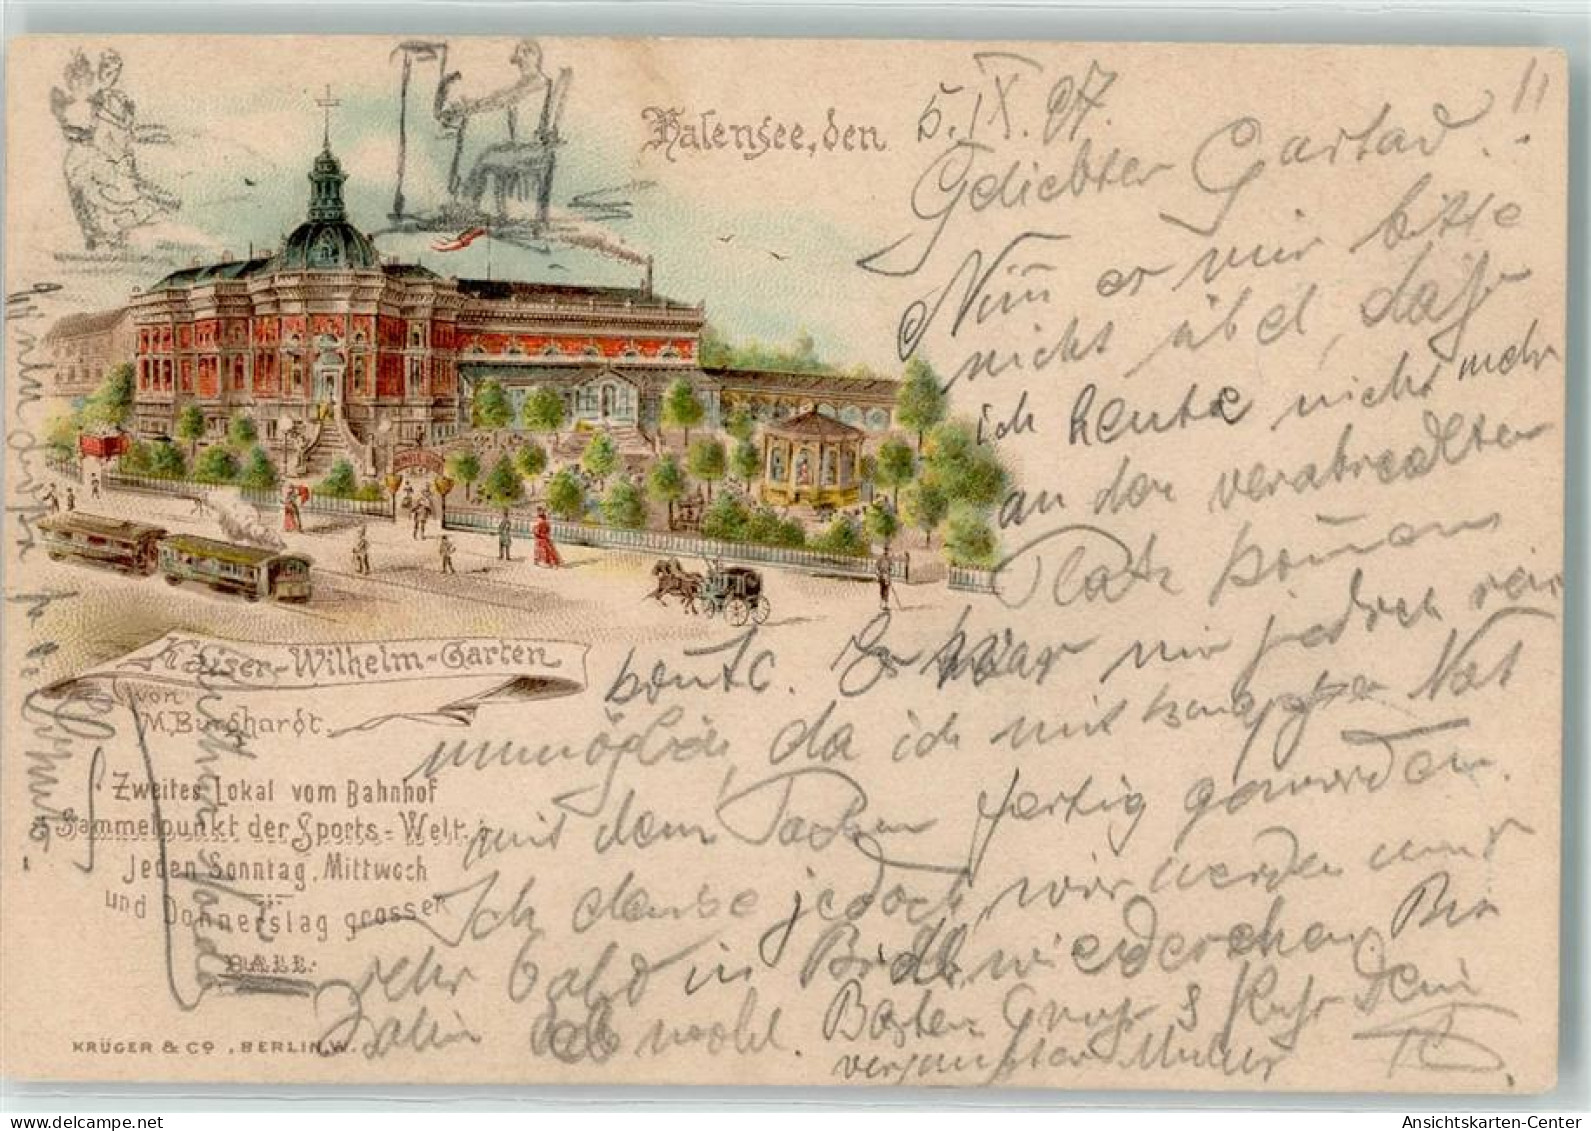 Halensee, den 5. IX. 97.
Geliebter !!
Nim̄ er mir bitte
nicht übel, daß
ich heute nicht mehr
an den verabredeten
Platz kom̄en
kon̄te. Es war mir jedoch rein
unmöglich, da ich mit knapper Not
mit dem Packen fertig geworden.
Ich denke jedoch, wir werden uns
sehr bald in wiedersehen. Bis
dahin leb wohl. Besten Gruß & Kuß Dein
Kaiser-Wilhelm-Garten
von
M. Burghardt.
Zweites Lokal vom Bahnhof
Sammelpunkt der Sports-Welt.
Jeden Sonntag, Mittwoch
und Donnerstag grosser
BALL.
KRÜGER & CO., BERLIN.W.
Ansichtskarten-Center